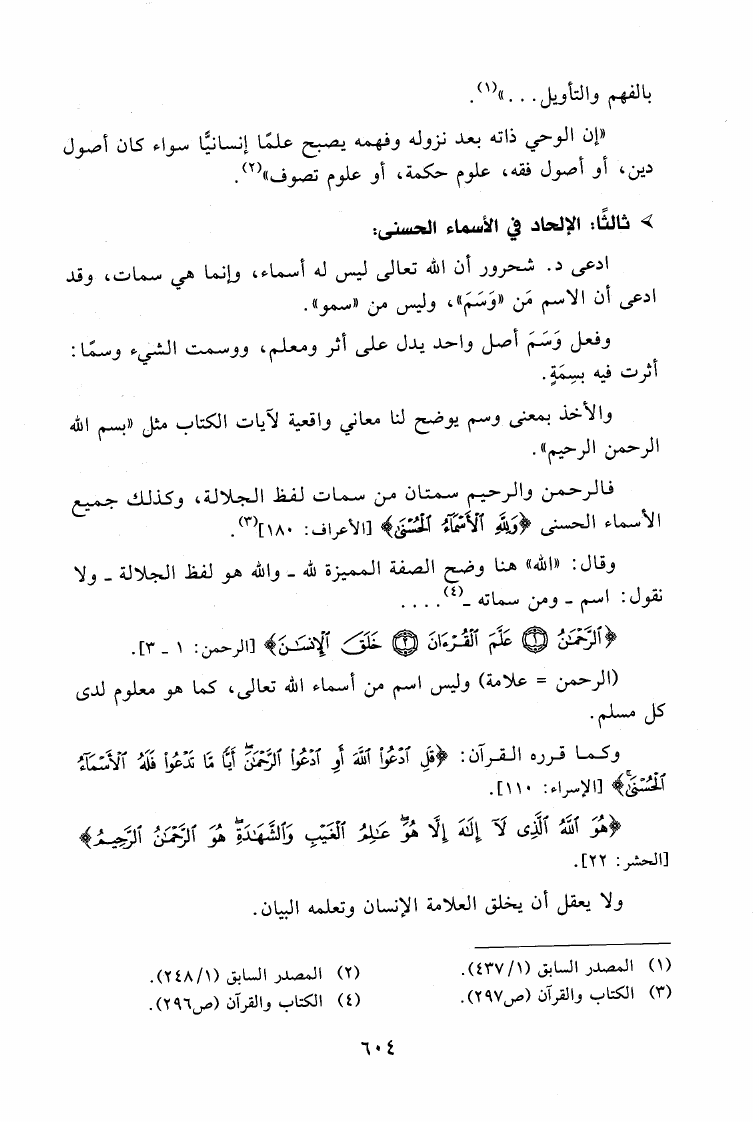 بالفهم والتأويل...»(١).
«إن الوحي ذاته بعد نزوله وفهمه يصبح علمًا إنسانيًّا سواء كان أصول
دين، أو أصول فقه، علوم حكمة، أو علوم تصوف»(٢).
ثالثًا: الإلحاد في الأسماء الحسنى:
ادعى د. شحرور أن الله تعالى ليس له أسماء، وإنما هي سمات، وقد
ادعى أن الاسم مَن «وَسَمَ»، وليس من «سمو».
وفعل وَسَمَ أصل واحد يدل على أثر ومعلم، ووسمت الشيء وسمًا:
أثرت فيه بسِمَةٍ.
والأخذ بمعنى وسم يوضح لنا معاني واقعية لآيات الكتاب مثل «بسم الله
الرحمن الرحيم».
فالرحمن والرحيم سمتان من سمات لفظ الجلالة، وكذلك جميع
الأسماء الحسنى ﴿وَلِلَّهِ ٱلْأَسْمَآءُ ٱلْحُسْنَىٰ﴾ [الأعراف: ١٨٠](٣).
وقال: «الله» هنا وضح الصفة المميزة لله ـ والله هو لفظ الجلالة ـ ولا
نقول: اسم ـ ومن سماته ـ(٤)....
﴿ٱلرَّحْمَٰنُ ۝١ عَلَّمَ ٱلْقُرْءَانَ ۝٢ خَلَقَ ٱلْإِنسَٰنَ﴾ [الرحمن: ١ ـ ٣].
(الرحمن = علامة) وليس اسم من أسماء الله تعالى، كما هو معلوم لدى
كل مسلم.
وكما قرره القرآن: ﴿قُلِ ٱدْعُوا۟ ٱللَّهَ أَوِ ٱدْعُوا۟ ٱلرَّحْمَٰنَ ۖ أَيًّا مَّا تَدْعُوا۟ فَلَهُ ٱلْأَسْمَآءُ
ٱلْحُسْنَىٰ ۚ﴾ [الإسراء: ١١٠].
﴿هُوَ ٱللَّهُ ٱلَّذِى لَآ إِلَٰهَ إِلَّا هُوَ ۖ عَٰلِمُ ٱلْغَيْبِ وَٱلشَّهَٰدَةِ ۖ هُوَ ٱلرَّحْمَٰنُ ٱلرَّحِيمُ﴾
[الحشر: ٢٢].
ولا يعقل أن يخلق العلامة الإنسان وتعلمه البيان.
(١) المصدر السابق (١/ ٤٣٧). (٢) المصدر السابق (١/ ٢٤٨).
(٣) الكتاب والقرآن (ص٢٩٧). (٤) الكتاب والقرآن (ص٢٩٦).
٦٠٤